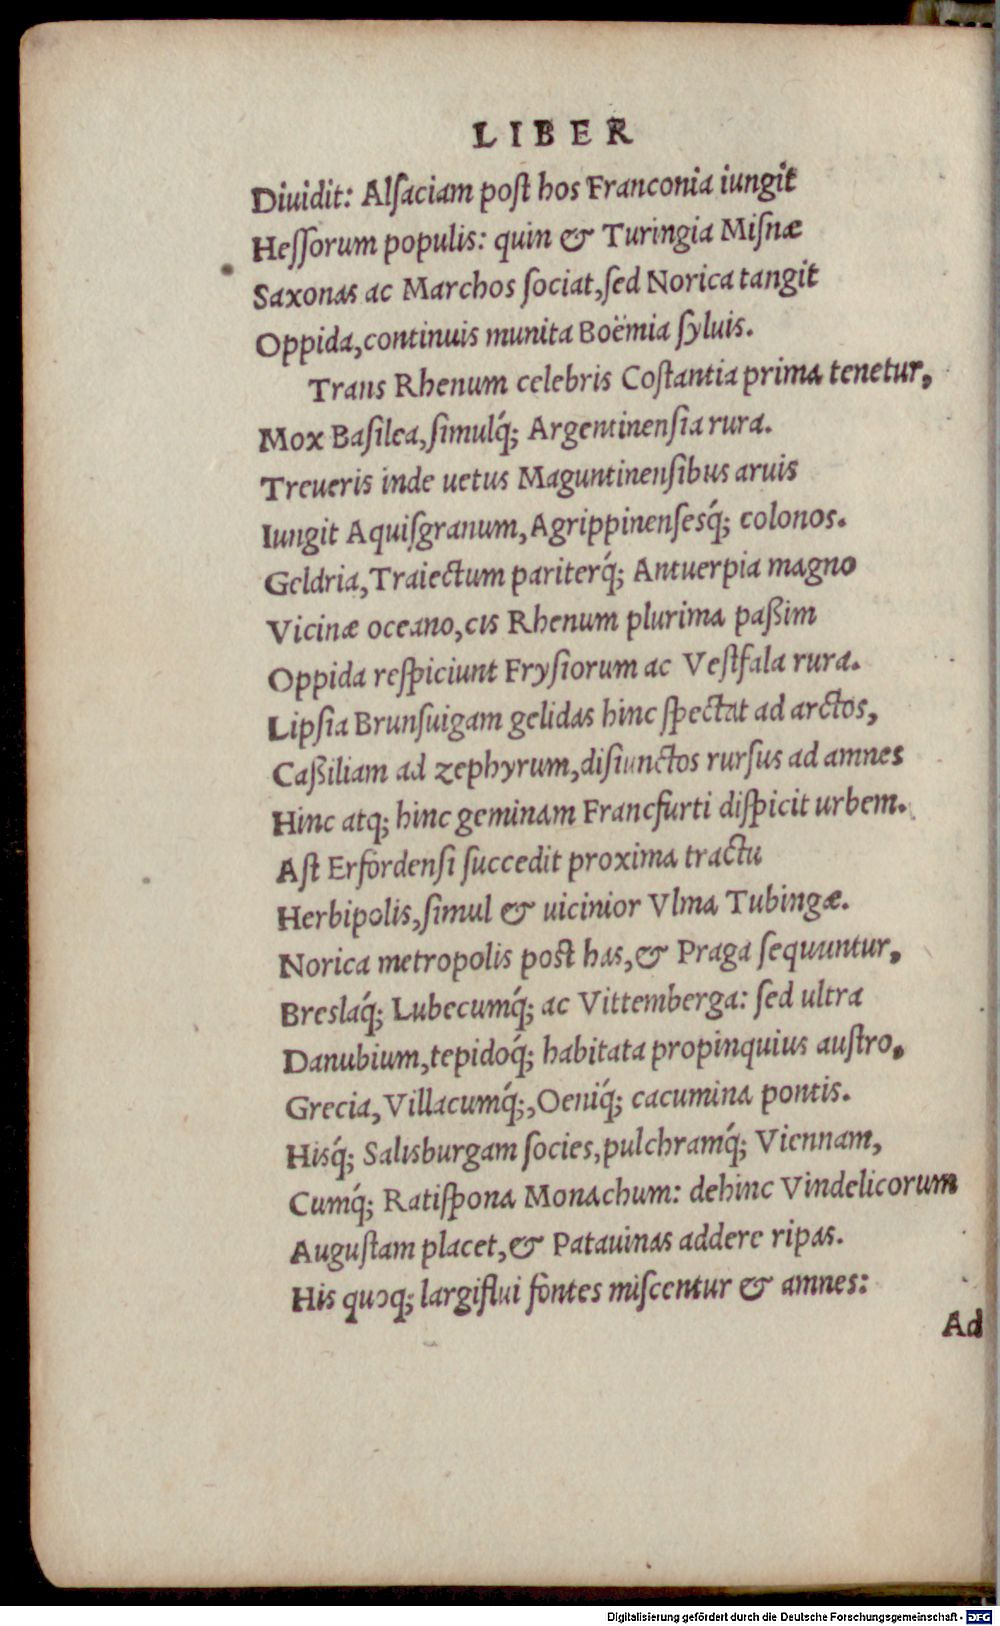 LIBER
Diuidit: Alſaciam poſt hos Franconia iungit
Heſſorum populis: quin & Turingia Miſnæ
Saxonas ac Marchos ſociat, ſed Norica tangit
Oppida, continuis munita Boëmia ſyluis.
Trans Rhenum celebris Coſtantia prima tenetur,
Mox Baſilea, ſimulq́; Argentinenſia rura.
Treueris inde uetus Maguntinenſibus aruis
Iungit Aquiſgranum, Agrippinenſesq́; colonos.
Geldria, Traiectum pariterq́; Antuerpia magno
Vicinæ oceano, cis Rhenum plurima paßim
Oppida reſpiciunt Fryſiorum ac Veſtfala rura.
Lipſia Brunſuigam gelidas hinc ſpectat ad arctos,
Caßiliam ad zephyrum, diſiunctos rurſus ad amnes
Hinc atq; hinc geminam Francfurti diſpicit urbem.
Aſt Erfordenſi ſuccedit proxima tractu
Herbipolis, ſimul & uicinior Vlma Tubingæ.
Norica metropolis poſt has, & Praga ſequuntur,
Breslaq́; Lubecumq́; ac Vittemberga: ſed ultra
Danubium, tepidoq́; habitata propinquius auſtro,
Grecia, Villacumq́;, Oeniq́; cacumina pontis.
Hisq́; Salisburgam ſocies, pulchramq́; Viennam,
Cumq́; Ratiſpona Monachum: dehinc Vindelicorum
Auguſtam placet, & Patauinas addere ripas.
His quoq; largiflui fontes miſcentur & amnes:
Ad
Digitalisierung gefördert durch die Deutsche Forschungsgemeinschaft - DFG